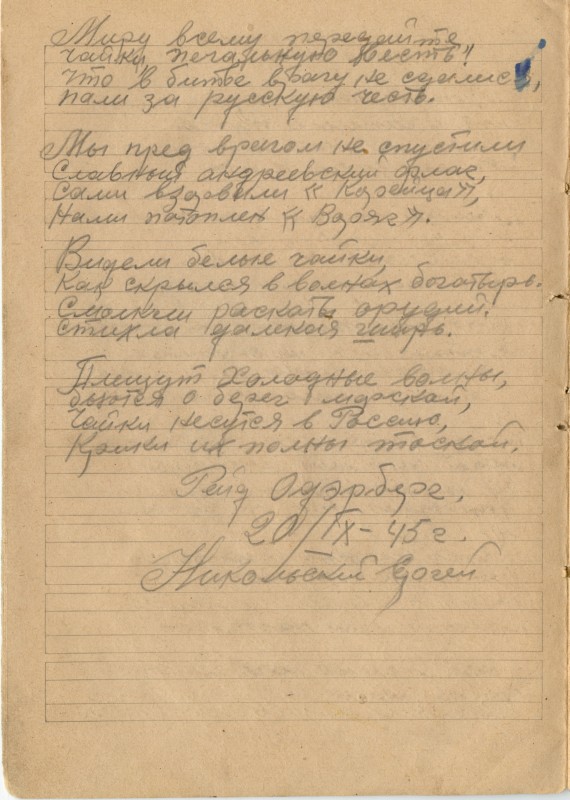 Миру всему передайте
Чайки печальную весть!
Что в битве врагу не сдались,
Пали за русскую честь.
Мы пред врагом не спустили
Славный андреевский флаг,
Сами взорвали « Корейца »,
Нами потоплен « Варяг ».
Видели белые чайки,
Как скрылся в волнах богатырь.
Смолкли раскаты орудий.
Стихла далекая ширь.
Плещут Холодные волны,
бьются о берег морской,
Чайки несутся в Россию,
Крики их полны тоской.
Рейд Одэрберг.
20/IX-45 г.
Никольский